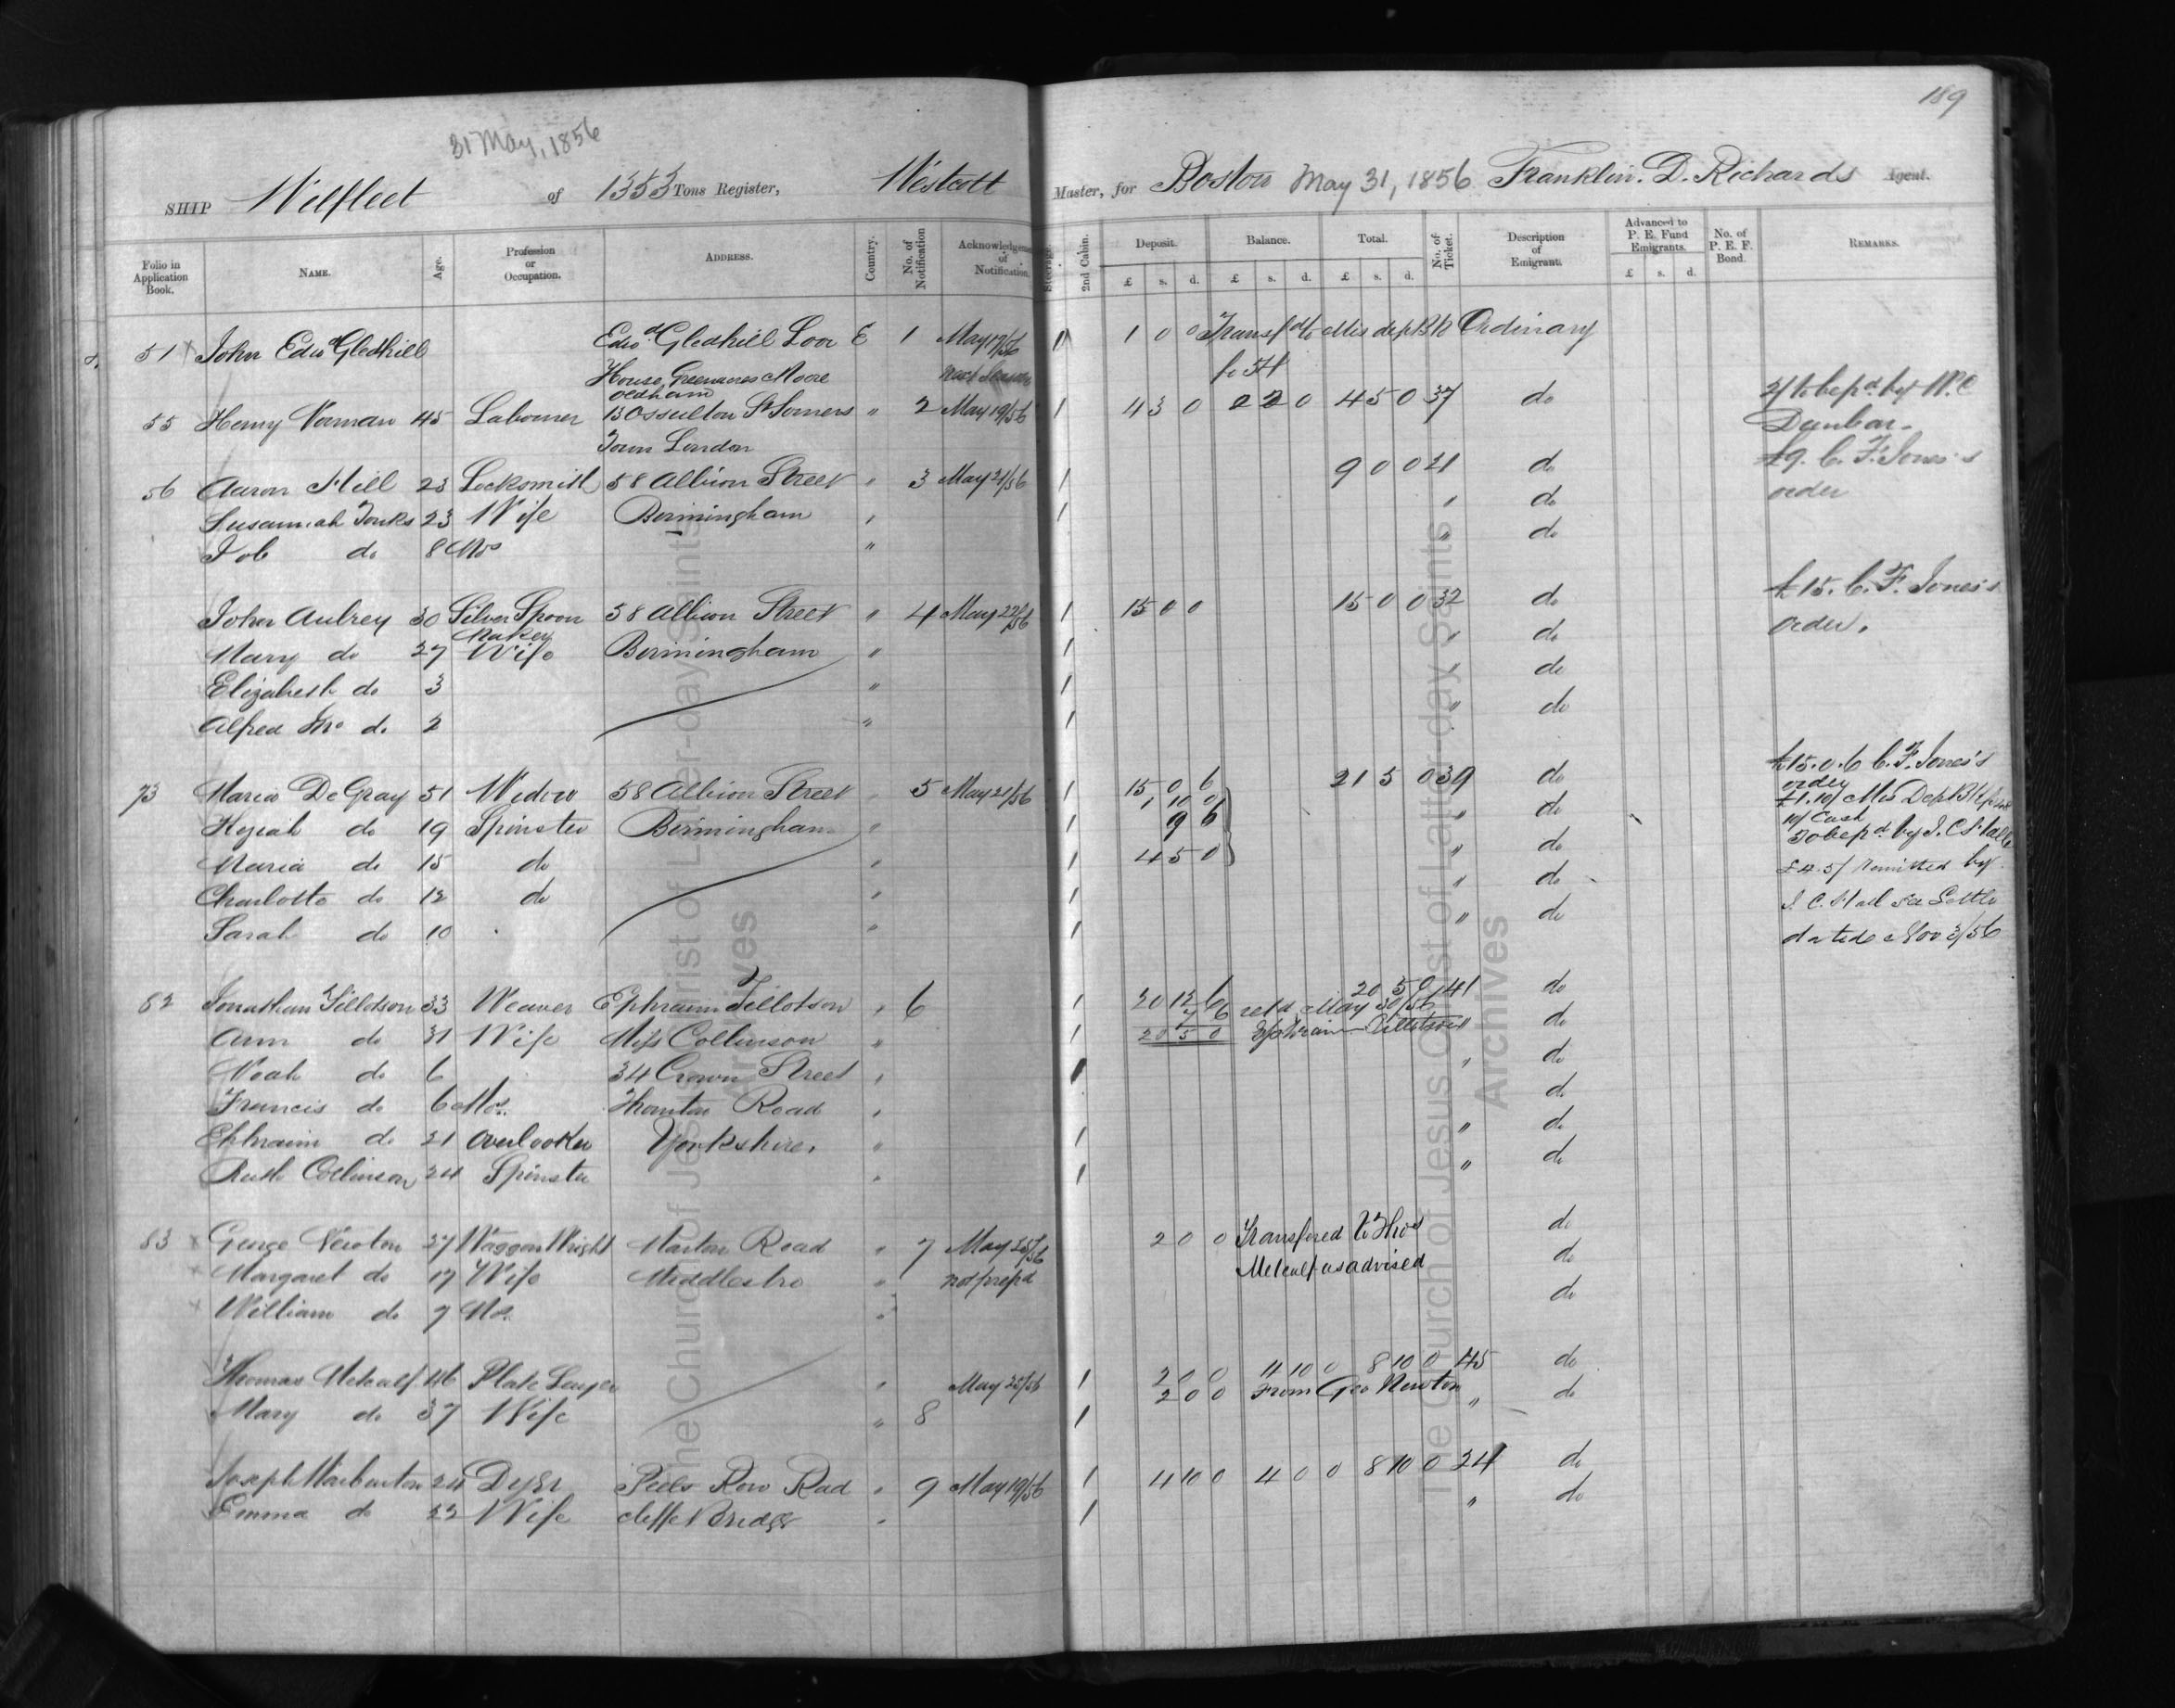 189
31 May, 1856
SHIP Wellfleet of 1353 Tons Register, Westcott Master, for Boston May 31, 1856 Franklin. D. Richards Agent.
Folio in Application Book. NAME. Age. Profession or Occupation. ADDRESS. Country. No. of Notification Acknowledgement of Notification. Steerage. 2nd Cabin. Deposit. £ s. d. Balance. £ s. d. Total. £ s. d. No. of Ticket. Description of Emigrant. Advanced to P. E. Fund Emigrants. £ s. d. No. of P. E. F. Bond. REMARKS.
51 x John Edwd Gledhill Edwd Gledhill E 1 May 17/56 1 1 0 0 Transfd to Mis dep Bk Ordinary
House, Greenacres Moore next Season fo 54
Oldham
55 Henry Norman 45 Labourer 13 Ossulton St Somers " 2 May 19/56 1 4 3 0 2 0 4 5 0 37 do 2/ to be pd by W.C
Town London Dunbar
56 Aaron Hill 23 Locksmith 58 Albion Street " 3 May 21/56 1 9 0 0 21 do £9. C. F. Jones's
Susannah Tonks 23 Wife Birmingham " 1 " do order
Job do 8 Mos " " do
John Aubrey 30 Silver Spoon 58 Albion Street " 4 May 22/56 1 15 0 0 15 0 0 32 do £15. C. F. Jones's
Maker
Mary do 27 Wife Birmingham " 1 " do order.
Elizabeth do 3 " 1 " do
Alfred do 2 " 1 " do
73 Maria De Gray 51 Widow 58 Albion Street " 5 May 21/56 1 15 0 6 21 5 0 39 do £15.0.6 C. F. Jones's
order
1 10 0 £1.10/ Mis Dep Bk
Keziah do 19 Spinster Birmingham " 1 9 6 " do 10/ Cash
To be pd by J. C. Hall
Maria do 15 do " 1 4 5 0 " do £4.5/ remitted by
Charlotte do 12 do " 1 " do J. C. Hall see Letter
Sarah do 10 " 1 " do dated Nov 3/56
82 Jonathan Tillotson 33 Weaver Ephraim Tillotson " 6 1 20 12 6 20 5 0 41 do
7 6 retd May 30/56
Ann do 31 Wife Miss Collinson " 1 20 5 0 Ephraim Tillotson " do
Noah do 6 34 Crown Street " 1 " do
Francis do 6 Mos. Thornton Road " do
Ephraim do 21 Overlooker Yorkshire. " 1 " do
Ruth Collinson 24 Spinster " 1 " do
83 x George Newton 27 Waggon Wright Marton Road " 7 May 25/56 2 0 0 Transfered to Thos do
x Margaret do 17 Wife Middlesbro " not prepd Metcalf as advised do
x William do 7 Mos. " do
Thomas Metcalf 46 Plate Layer " May 25/56 1 2 0 0 4 10 0 8 10 0 45 do
2 0 0 From Geo Newton
Mary do 37 Wife " 8 1 " do
Joseph Warburton 24 Dyer Peels Row Rad " 9 May 19/56 1 4 10 0 4 0 0 8 10 0 24 do
Emma do 22 Wife cliffe Bridge " 1 " do
The Church of Jesus Christ of Latter-day Saints
Archives
The Church of Jesus Christ of Latter-day Saints
Archives